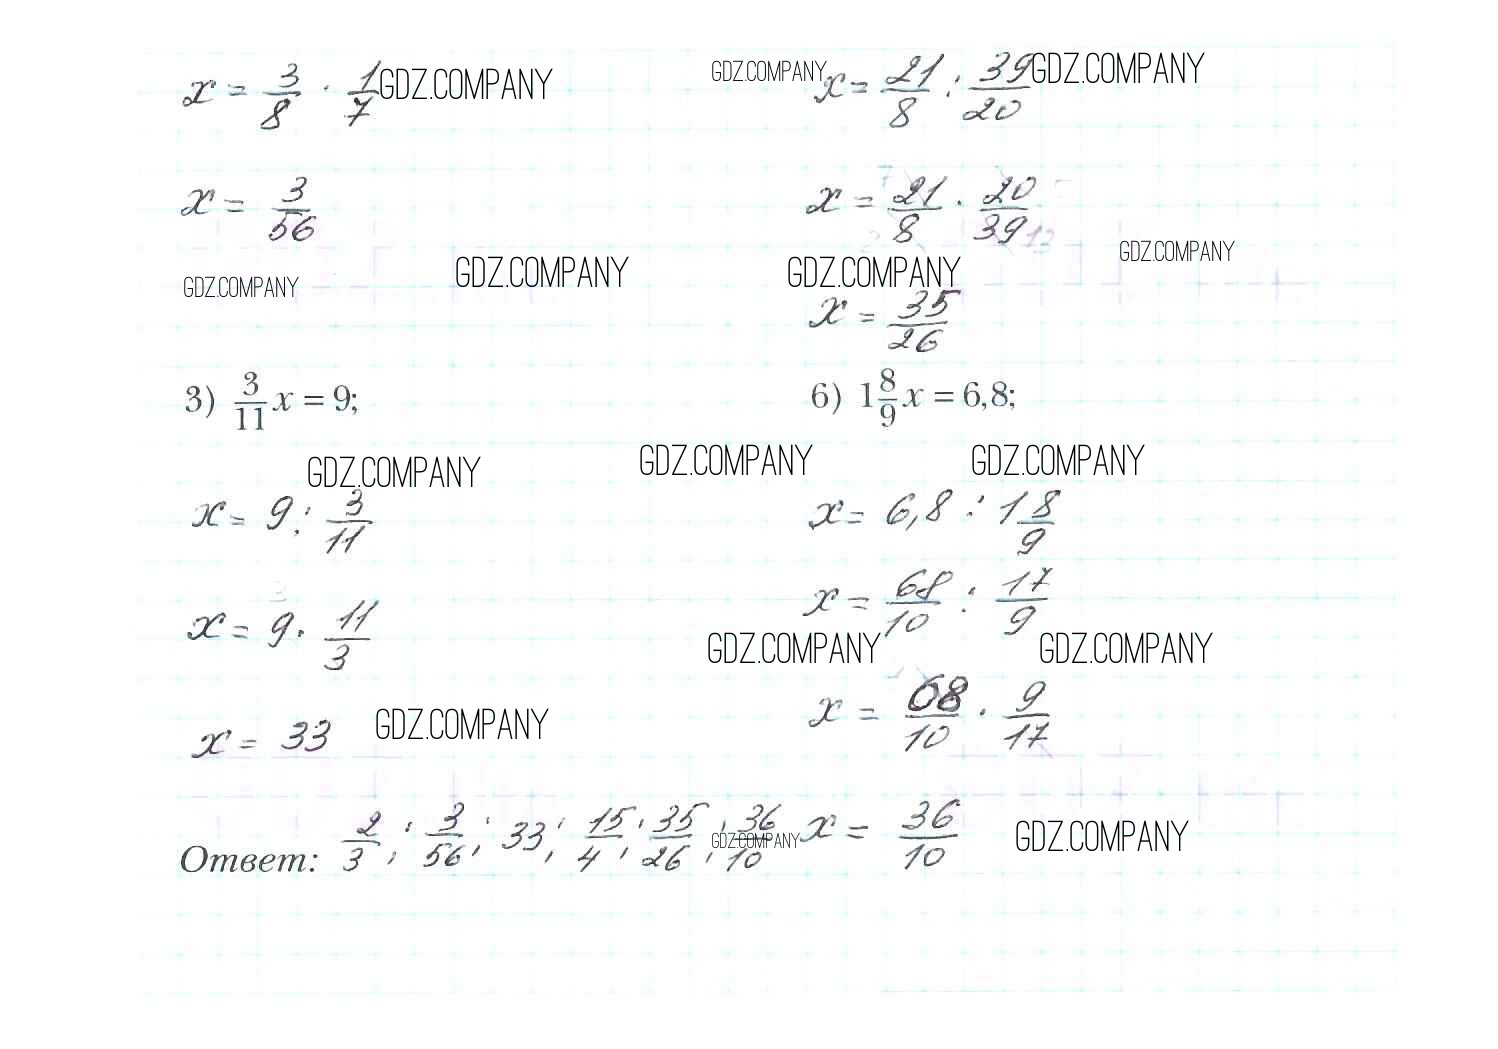 x = 3/8 · 1/7 GDZ.COMPANY
GDZ.COMPANY x = 21/8 : 39/20 GDZ.COMPANY
x = 3/56
x = 21/8 · 20/39 13
GDZ.COMPANY
GDZ.COMPANY GDZ.COMPANY GDZ.COMPANY
x = 35/26
3) 3/11 x = 9;
6) 1 8/9 x = 6,8;
GDZ.COMPANY GDZ.COMPANY GDZ.COMPANY
x = 9 : 3/11
x = 6,8 : 1 8/9
x = 9 · 11/3
x = 68/10 : 17/9
GDZ.COMPANY GDZ.COMPANY
x = 68/10 · 9/17
x = 33 GDZ.COMPANY
Ответ: 2/3; 3/56; 33; 15/4; 35/26; 36/10
GDZ.COMPANY x = 36/10 GDZ.COMPANY